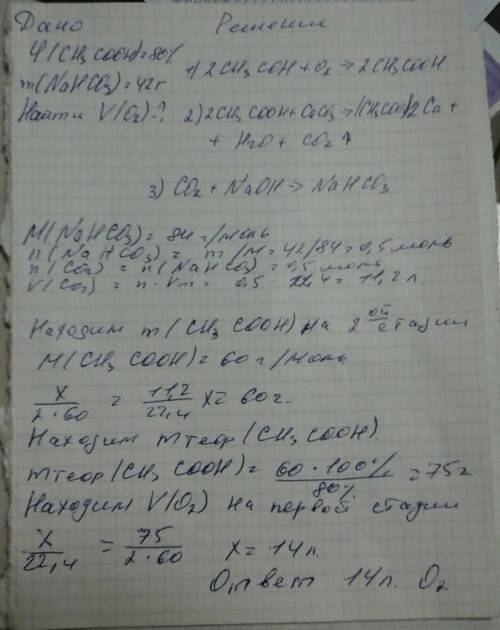 Дано Решение
φ(CH3COOH)=80%
1) 2CH3COH+O2→2CH3COOH
m(NaHCO3)=42г
Найти V(O2)-? 2) 2CH3COOH+CaCO3→(CH3COO)2Ca+
+ H2O + CO2↑
3) CO2+NaOH→NaHCO3
M(NaHCO3)= 84 г/моль
n(NaHCO3)= m/M=42/84=0,5 моль
n(CO2) = n(NaHCO3)=0,5 моль
V(CO2) = n·Vm= 0,5·22,4=11,2л.
Находим m(CH3COOH) на 2ой стадии
M(CH3COOH)=60г/моль
x/2·60 = 11,2/22,4 x=60г.
Находим mтеор(CH3COOH).
mтеор(CH3COOH)= 60·100%/80% =75г
Находим V(O2) на первой стадии
x/22,4 = 75/2·60 x=14л.
Ответ 14л. O2